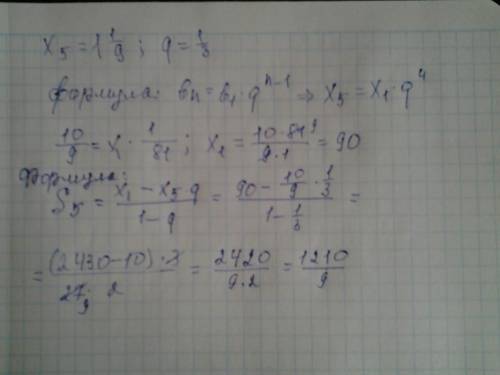 x₅ = 1 1/9 ; q = 1/3
формула: bn = b₁ · q^(n-1) ⇒ x₅ = x₁ · q⁴
10/9 = x₁ · 1/81 ; x₁ = (10 · 81⁹)/(9 · 1) = 90
Формула:
S₅ = (x₁ - x₅ · q)/(1 - q) = (90 - 10/9 · 1/3)/(1 - 1/3) =
= ((2430 - 10) · 3)/(27₉ · 2) = 2420/(9 · 2) = 1210/9